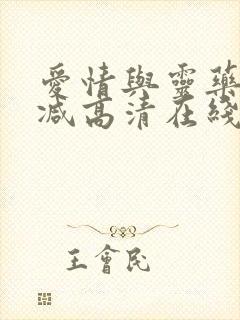 愛情與靈藥
减高清在綫
王會民